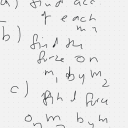 a) find acc
of each
m
b) find the
force on
m, by m2
c) find force
on m by m